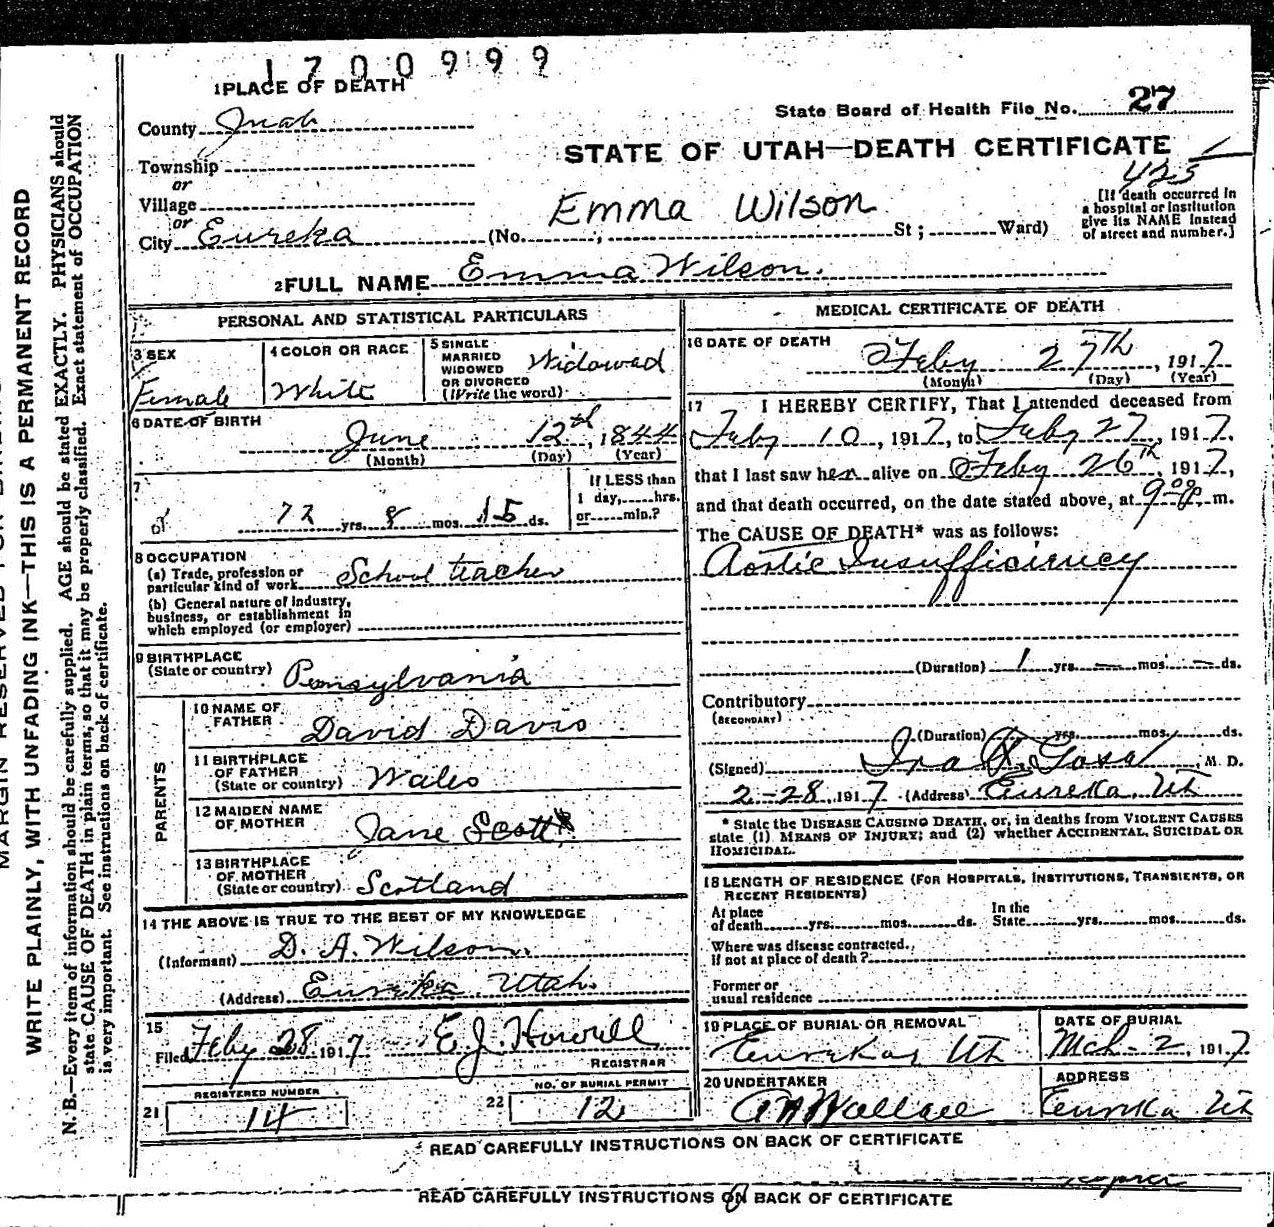 1700999
1 PLACE OF DEATH
State Board of Health File No. 27
County Juab
STATE OF UTAH—DEATH CERTIFICATE
Township
425
or
Village
or
City Eureka (No. ; St ; Ward)
Emma Wilson
[If death occurred in
a hospital or institution
give its NAME instead
of street and number.]
2 FULL NAME Emma Wilson.
PERSONAL AND STATISTICAL PARTICULARS
3 SEX
Female
4 COLOR OR RACE
White
5 SINGLE
MARRIED
WIDOWED
OR DIVORCED
(Write the word)
Widowed
6 DATE OF BIRTH
June 12th, 1844
(Month) (Day) (Year)
7
72 yrs. 8 mos. 15 ds.
If LESS than
1 day, hrs.
or min.?
8 OCCUPATION
(a) Trade, profession or
particular kind of work School teacher
(b) General nature of industry,
business, or establishment in
which employed (or employer)
9 BIRTHPLACE
(State or country) Pennsylvania
PARENTS
10 NAME OF
FATHER David Davis
11 BIRTHPLACE
OF FATHER
(State or country) Wales
12 MAIDEN NAME
OF MOTHER Jane Scott
13 BIRTHPLACE
OF MOTHER
(State or country) Scotland
14 THE ABOVE IS TRUE TO THE BEST OF MY KNOWLEDGE
(Informant) D. A. Wilson.
(Address) Eureka Utah.
15
Filed Feby 28 1917 E J. Howell
REGISTRAR
REGISTERED NUMBER
21 14
NO. OF BURIAL PERMIT
22 12
MEDICAL CERTIFICATE OF DEATH
16 DATE OF DEATH
Feby 27th, 1917
(Month) (Day) (Year)
17 I HEREBY CERTIFY, That I attended deceased from
Feby 10, 1917, to Feby 27, 1917.
that I last saw her alive on Feby 26th, 1917,
and that death occurred, on the date stated above, at 9:00 P. m.
The CAUSE OF DEATH* was as follows:
Aortic Insufficiency
(Duration) 1 yrs. — mos. — ds.
Contributory
(SECONDARY)
(Duration) yrs. mos. ds.
(Signed) Ira, M. D.
2-28, 1917 (Address) Eureka, Ut
* State the DISEASE CAUSING DEATH, or, in deaths from VIOLENT CAUSES
state (1) MEANS OF INJURY; and (2) whether ACCIDENTAL, SUICIDAL OR
HOMICIDAL.
18 LENGTH OF RESIDENCE (FOR HOSPITALS, INSTITUTIONS, TRANSIENTS, OR
RECENT RESIDENTS)
At place
of death yrs. mos. ds.
In the
State yrs. mos. ds.
Where was disease contracted,
if not at place of death?
Former or
usual residence
19 PLACE OF BURIAL OR REMOVAL
Eureka, Ut
DATE OF BURIAL
Mch - 2, 1917
20 UNDERTAKER
Wallace
ADDRESS
Eureka Ut
READ CAREFULLY INSTRUCTIONS ON BACK OF CERTIFICATE
READ CAREFULLY INSTRUCTIONS ON BACK OF CERTIFICATE
WRITE PLAINLY, WITH UNFADING INK—THIS IS A PERMANENT RECORD
N. B.—Every item of information should be carefully supplied. AGE should be stated EXACTLY. PHYSICIANS should
state CAUSE OF DEATH in plain terms, so that it may be properly classified. Exact statement of OCCUPATION
is very important. See instructions on back of certificate.